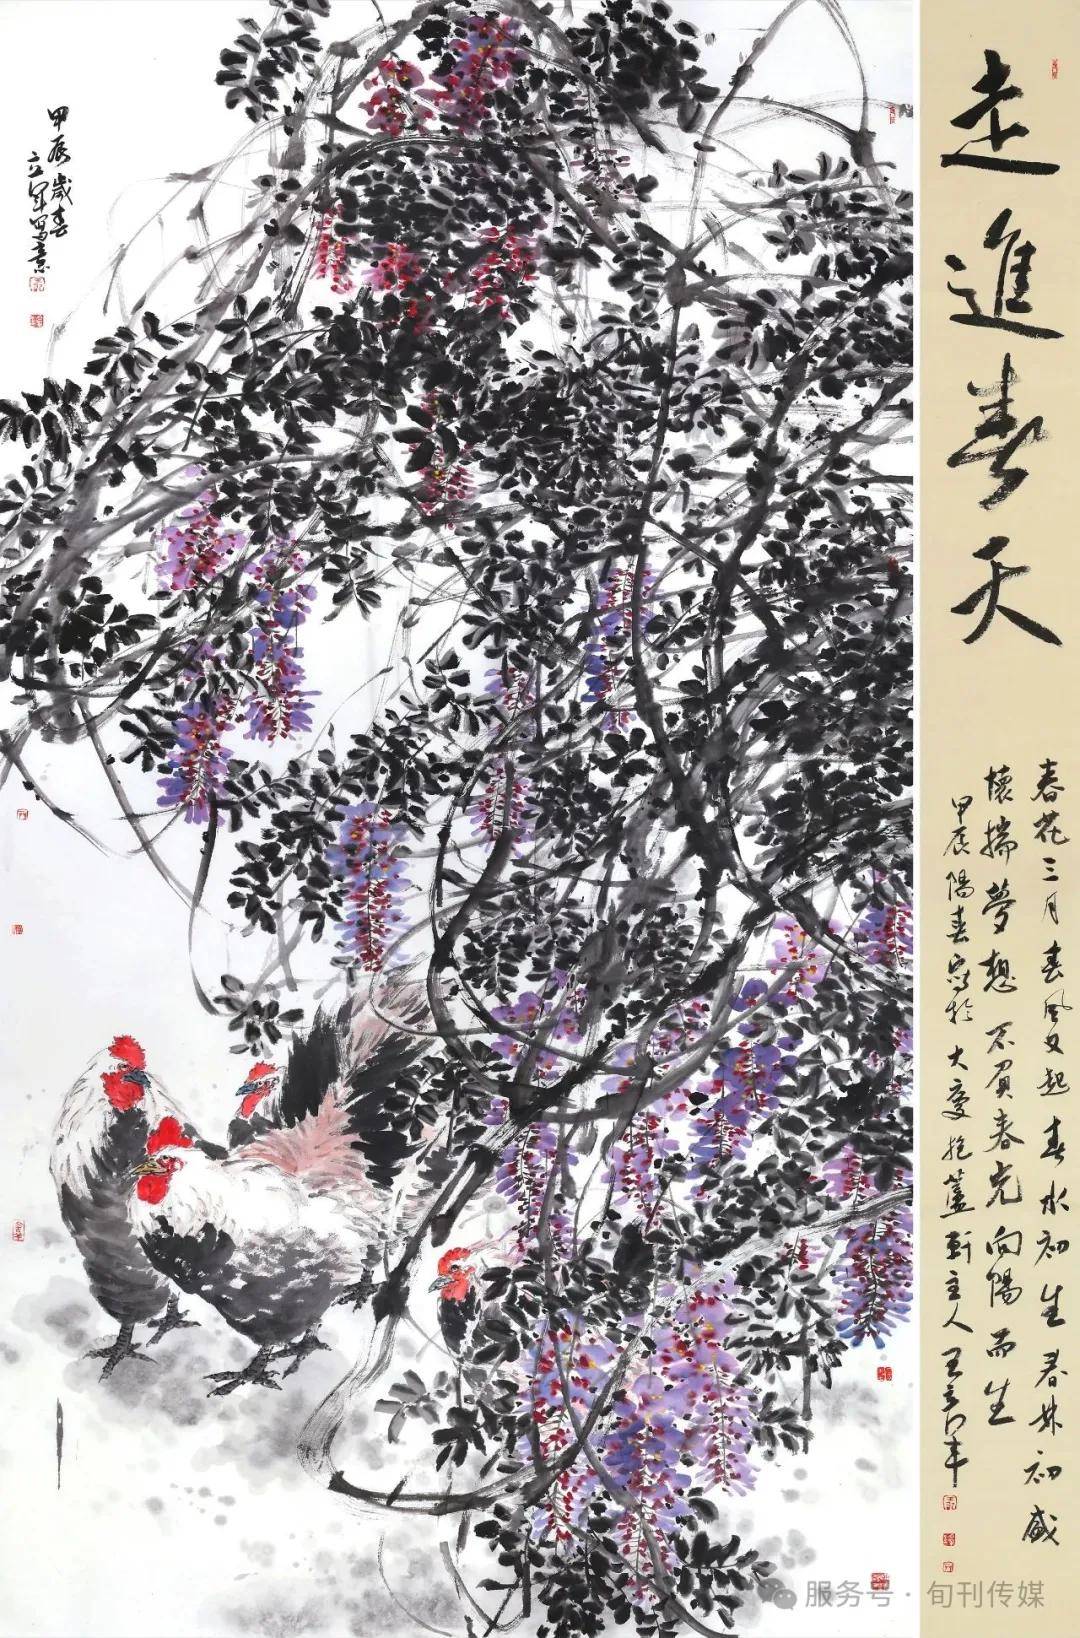 走進春天
春花三月春風又起春水初生春林初盛
懷揣夢想不負春光向陽而生
甲辰陽春写於大慶抱軒主人王立軍
甲辰歲春
立軍寫意
服务号·旬刊传媒